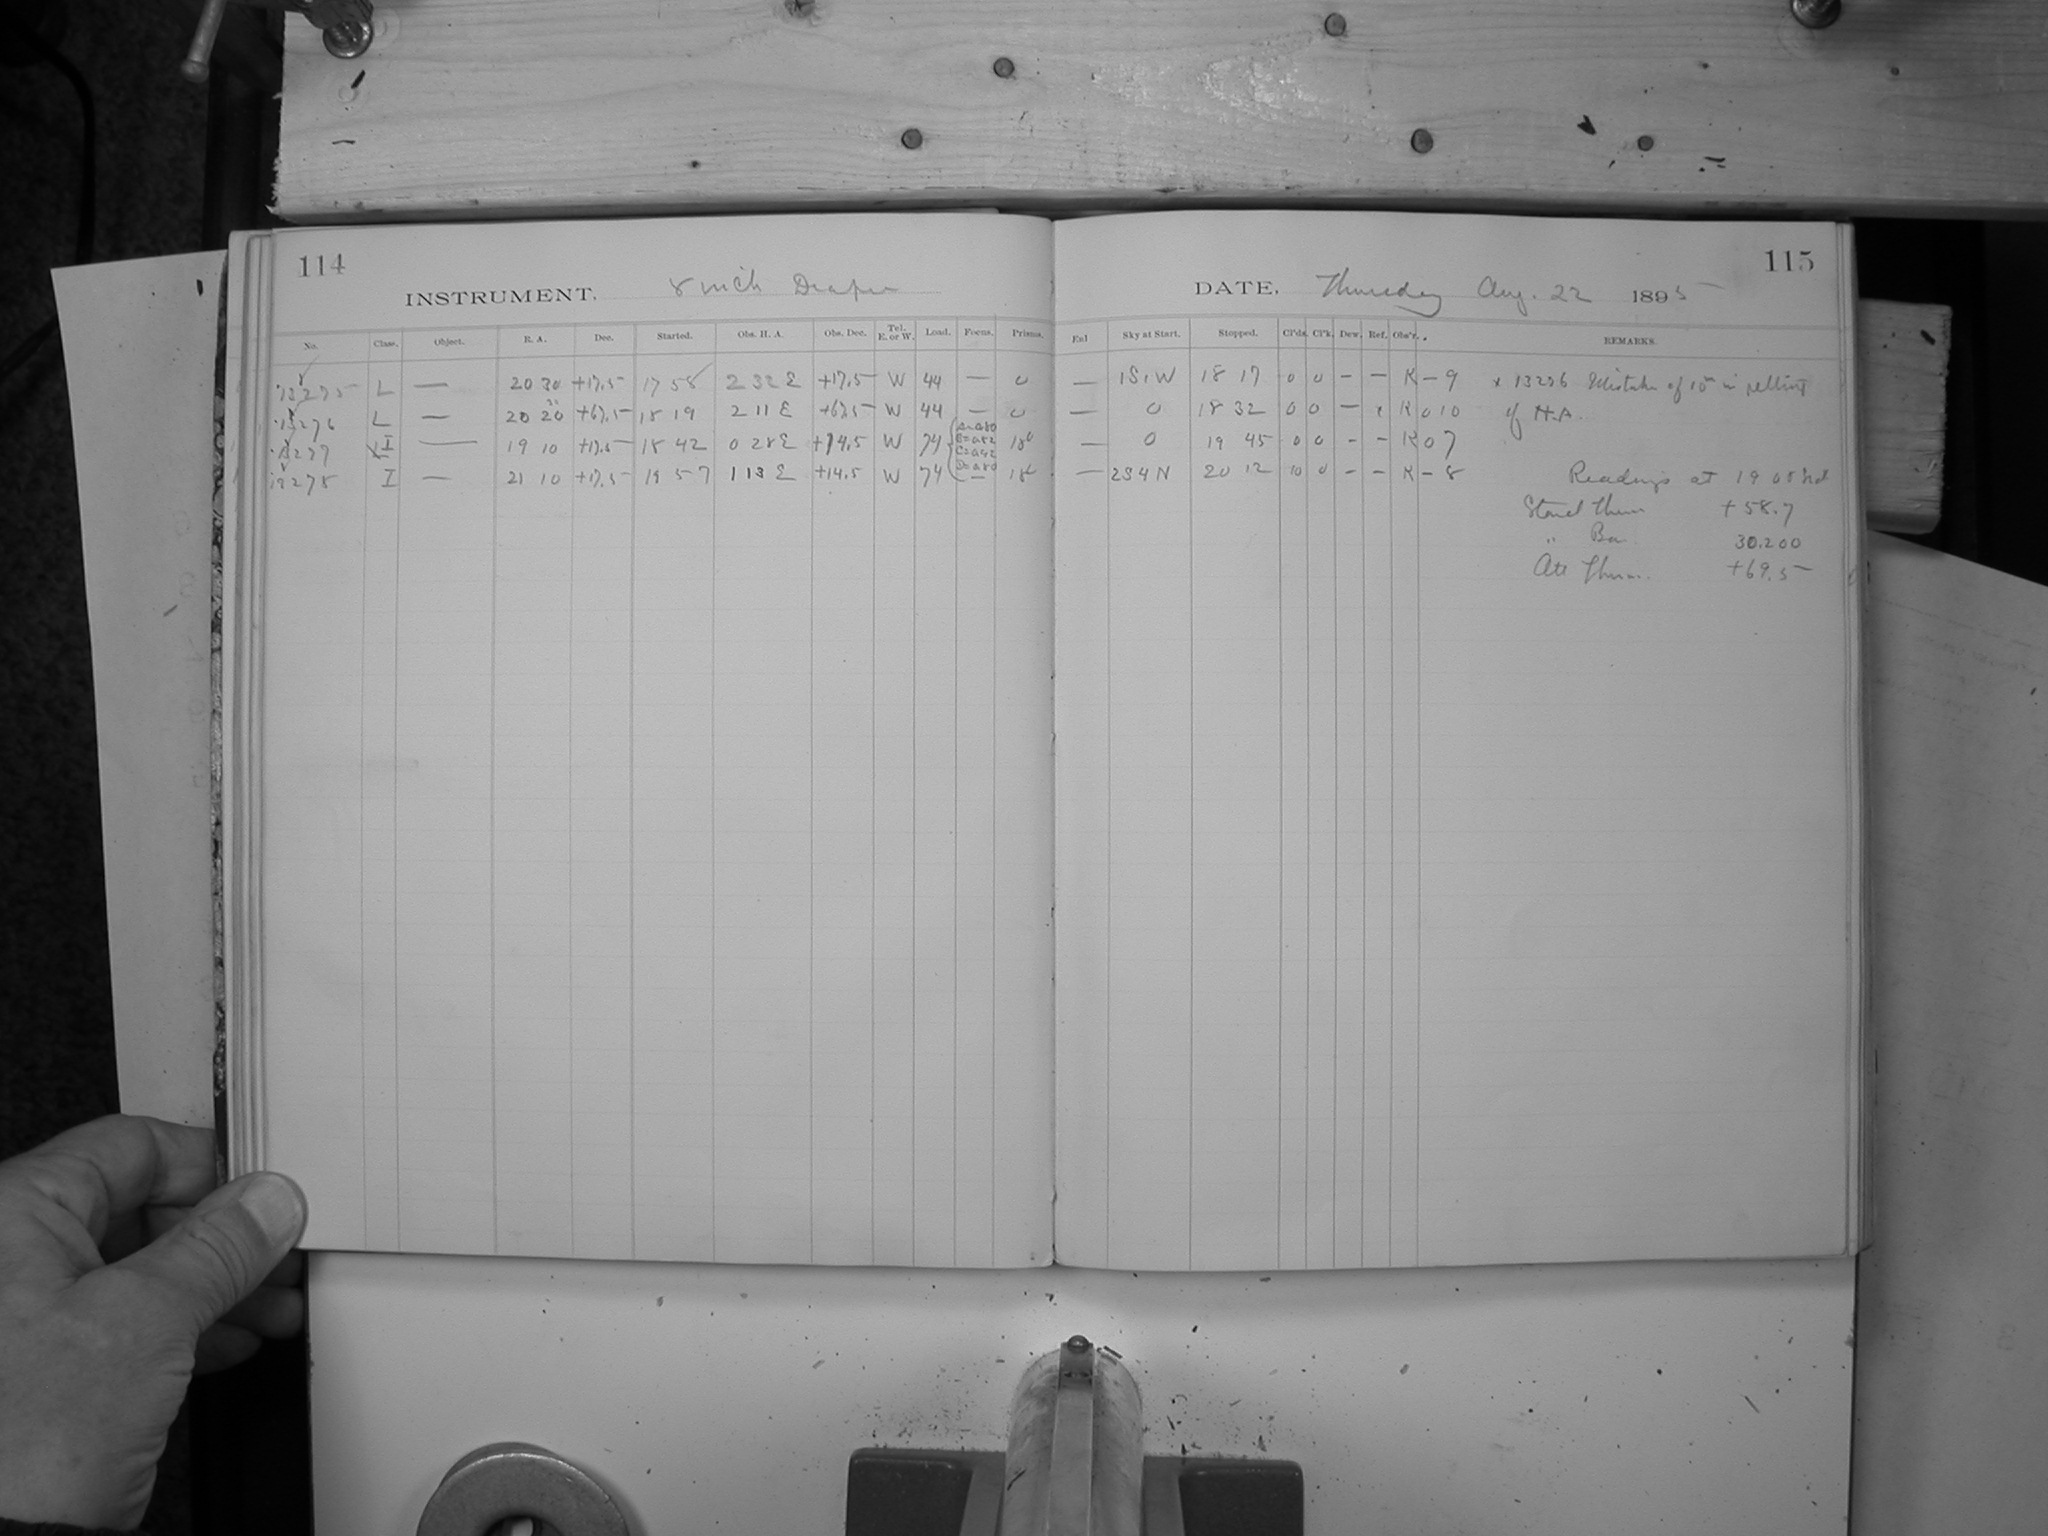 114
INSTRUMENT. 8 inch Draper
No. Class. Object. R. A. Dec. Started. Obs. H. A. Obs. Dec. Tel. E. or W. Load. Focus. Prisms.
13275 L — 20 30 +17.5 17 58 2 32 E +17.5 W 44 — 0
13276 L — 20 20 +67.5 18 19 2 11 E +67.5 W 44 — 0
13277 I — 19 10 +17.5 18 42 0 28 E +14.5 W 74 18°
13278 I — 21 10 +17.5 19 57 1 13 E +14.5 W 74 — 18°
115
DATE, Thursday Aug. 22 1895
Enl Sky at Start. Stopped. Cl'ds. Cl'k. Dew. Ref. Obs'r. REMARKS.
— 1S1W 18 17 0 0 – – K – 9 x 13276 Mistake of 10m in setting
— 0 18 32 0 0 – K 0 10 of H.A.
— 0 19 45 0 0 – – K 0 7
— 2S4N 20 12 10 0 – – K – 8 Readings at 19 05
Stand Therm +58.7
" Bar. 30.200
Att Therm. +69.5